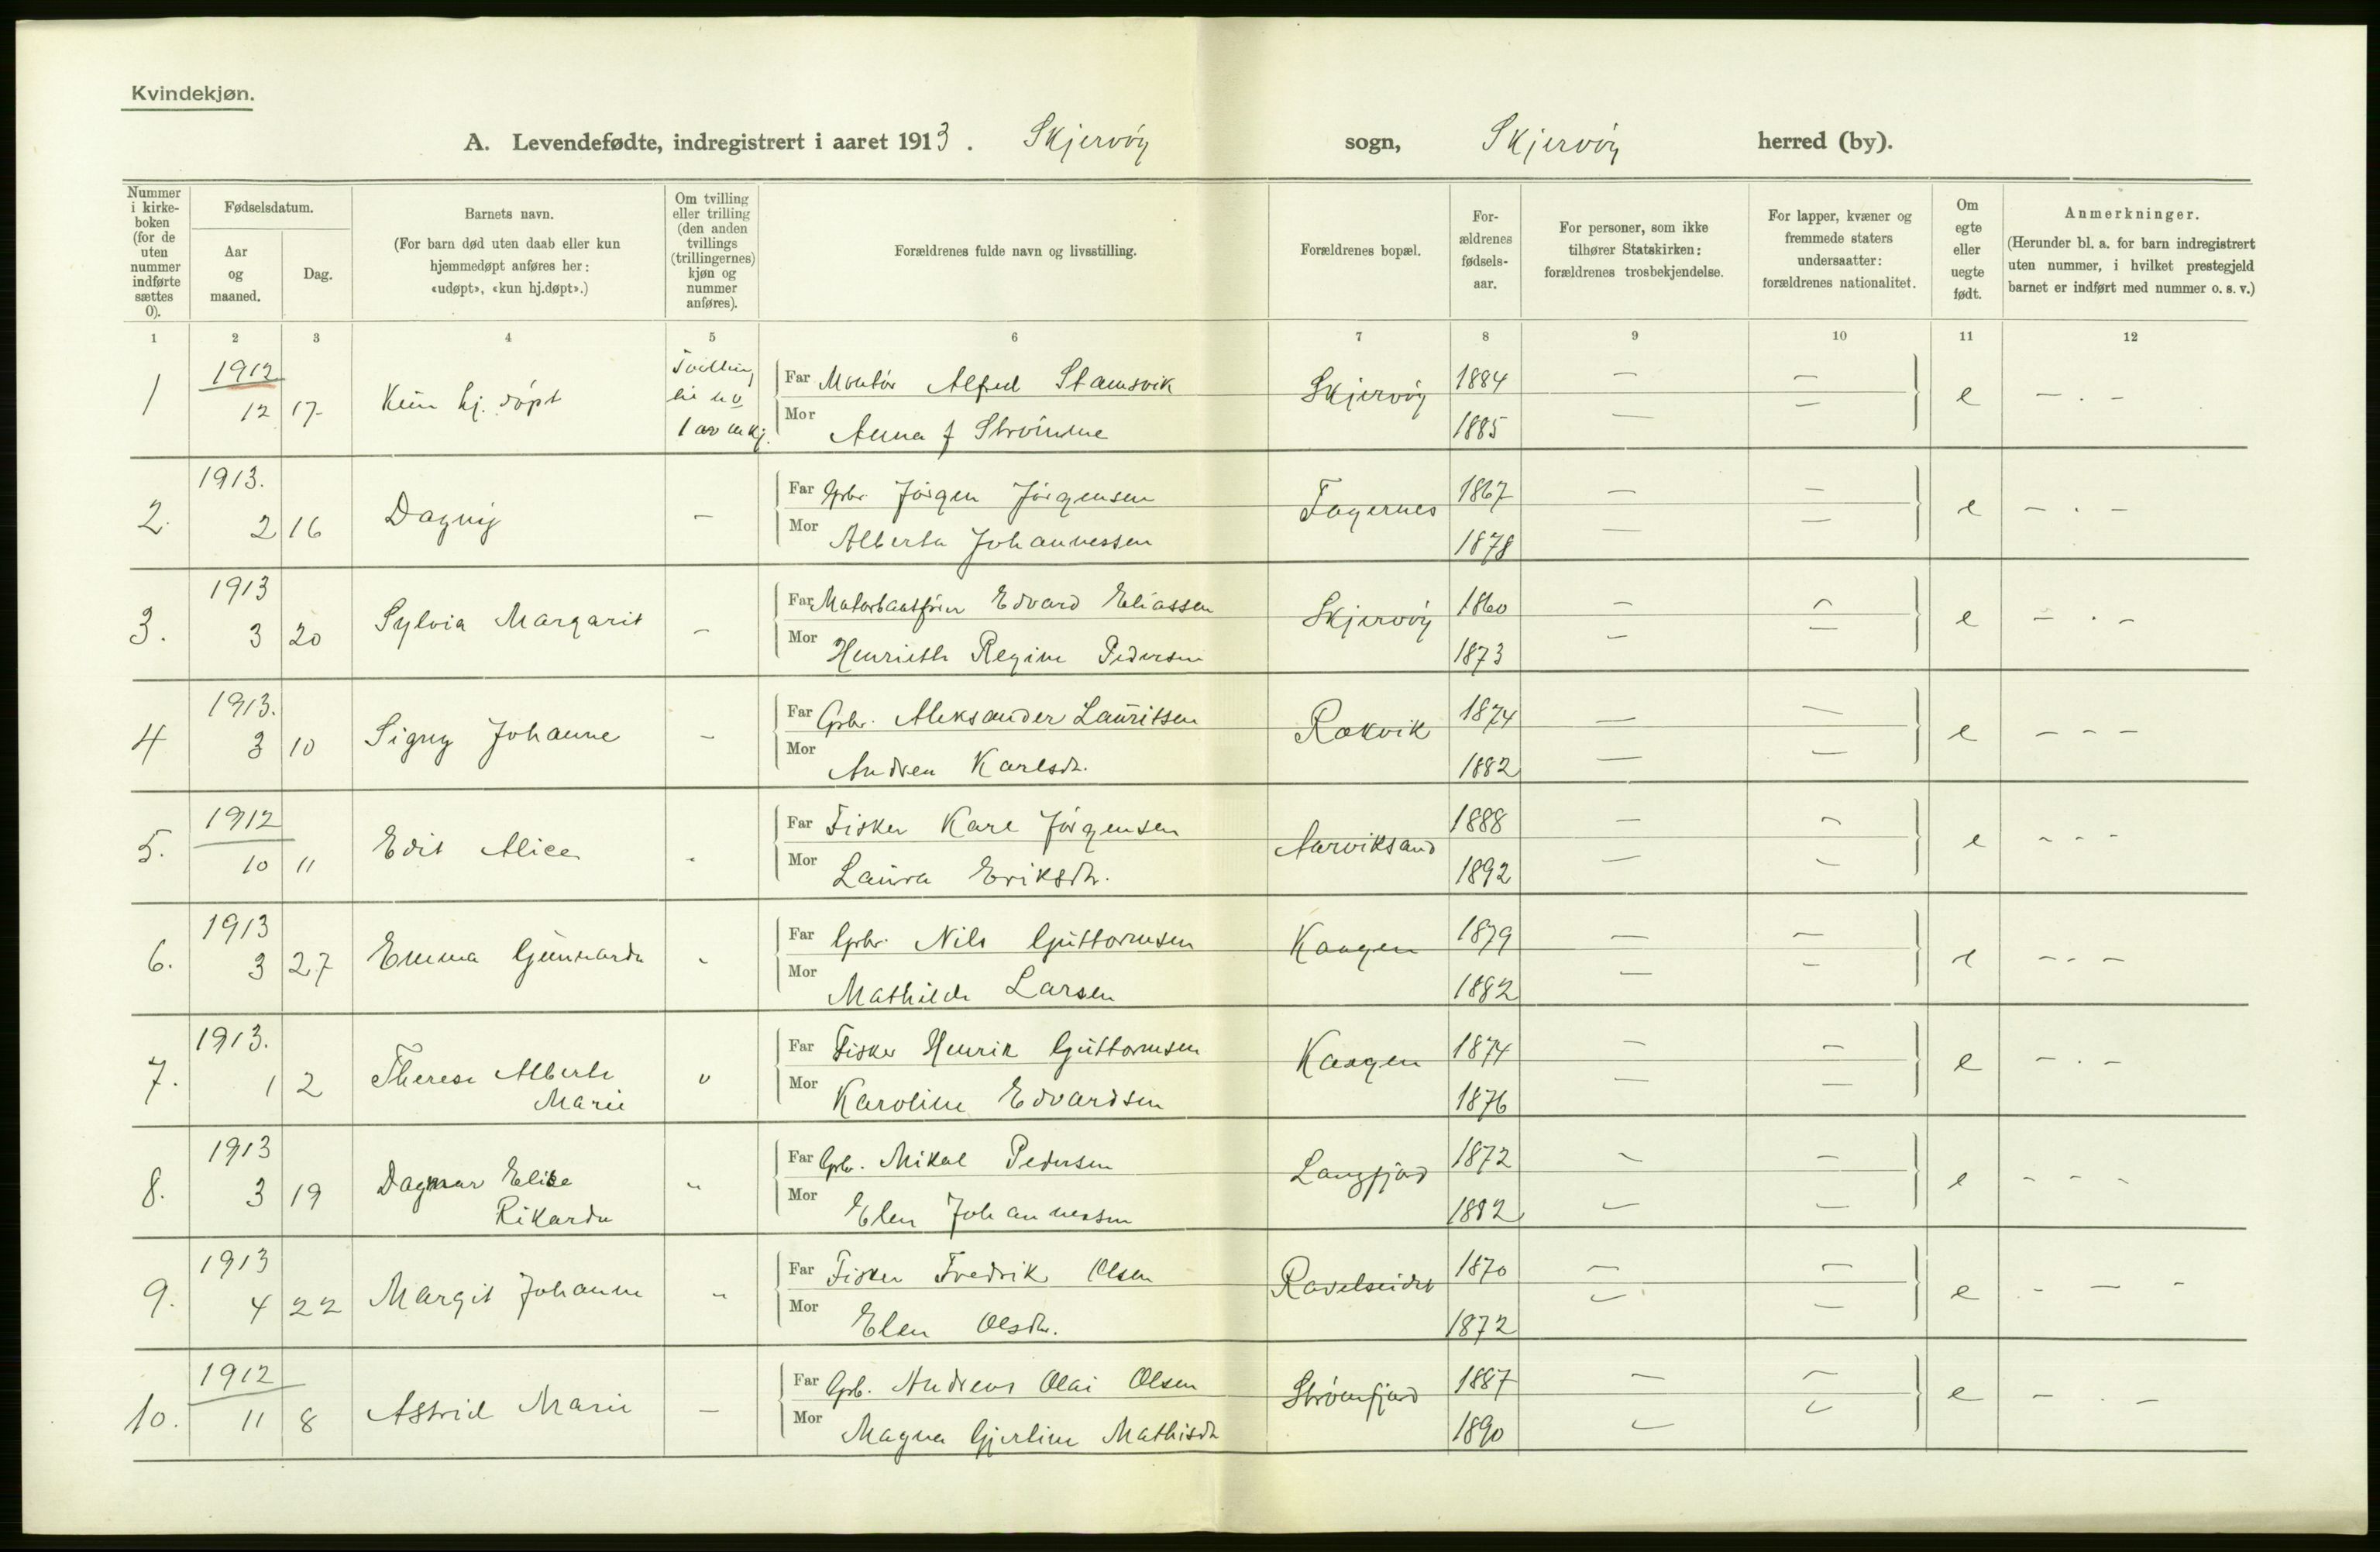 Kvindekjøn.
A. Levendefødte, indregistrert i aaret 1913. Skjervöy sogn, Skjervöy herred (by).
Nummer i kirkeboken (for de uten nummer indførte sættes 0).
Fødselsdatum.
Aar og maaned.
Dag.
Barnets navn.
(For barn død uten daab eller kun hjemmedøpt anføres her: «udøpt», «kun hj.døpt».)
Om tvilling eller trilling (den anden tvillings (trillingernes) kjøn og nummer anføres).
Forældrenes fulde navn og livsstilling.
Forældrenes bopæl.
For-ældrenes fødsels-aar.
For personer, som ikke tilhører Statskirken: forældrenes trosbekjendelse.
For lapper, kvæner og fremmede staters undersaatter: forældrenes nationalitet.
Om egte eller uegte født.
Anmerkninger.
(Herunder bl. a. for barn indregistrert uten nummer, i hvilket prestegjeld barnet er indført med nummer o. s. v.)
1 2 3 4 5 6 7 8 9 10 11 12
1 1912 12 17 Kun hj. döpt Tvilling til no 1 av mkj. Far Montör Alfred Stamsvik Skjervöy 1884 — — e — . —
Mor Anna f Strömme 1885 — —
2. 1913. 2 16 Dagny — Far Gbr. Jörgen Jörgensen Fagernes 1867 — — e — . —
Mor Alberta Johannessen 1878 — —
3. 1913 3 20 Sylvia Margarit — Far Motorbaatförer Edvard Eliassen Skjervöy 1860 — — e — . —
Mor Henriette Regine Pedersen 1873 — —
4 1913. 3 10 Signy Johanne — Far Gbr. Aleksander Lauritsen Rakvik 1874 — — e — — —
Mor Andrea Karlsdr. 1882 — —
5. 1912 10 11 Edit Alice - Far Fisker Karl Jörgensen Aarviksand 1888 — — e - - -
Mor Laura Eriksdr. 1892 — —
6. 1913 3 27 Emma Gunnarda - Far Gbr. Nils Guttormsen Kaagen 1879 — — e — - —
Mor Mathilde Larsen 1882 — —
7. 1913. 1 2 Therese Alberte Marie " Far Fisker Henrik Guttormsen Kaagen 1874 — — e — . —
Mor Karoline Edvardsen 1876 — —
8. 1913 3 19 Dagmar Elise Rikarda " Far Gbr. Mikal Pedersen Langfjord 1872 — — e - - -
Mor Elen Johannessen 1882 — —
9. 1913 4 22 Margit Johanne " Far Fisker Fredrik Olsen Ravelseidet 1870 — — e - — -
Mor Elen Olsdr. 1872 — —
10. 1912 11 8 Astrid Marie — Far Gbr. Andreas Olai Olsen Strömfjord 1887 — — e — . —
Mor Magna Gjerline Mathisdr 1890 — —